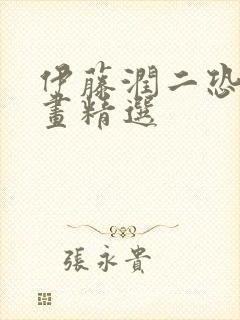 伊藤潤二恐
畫精選
張永貴